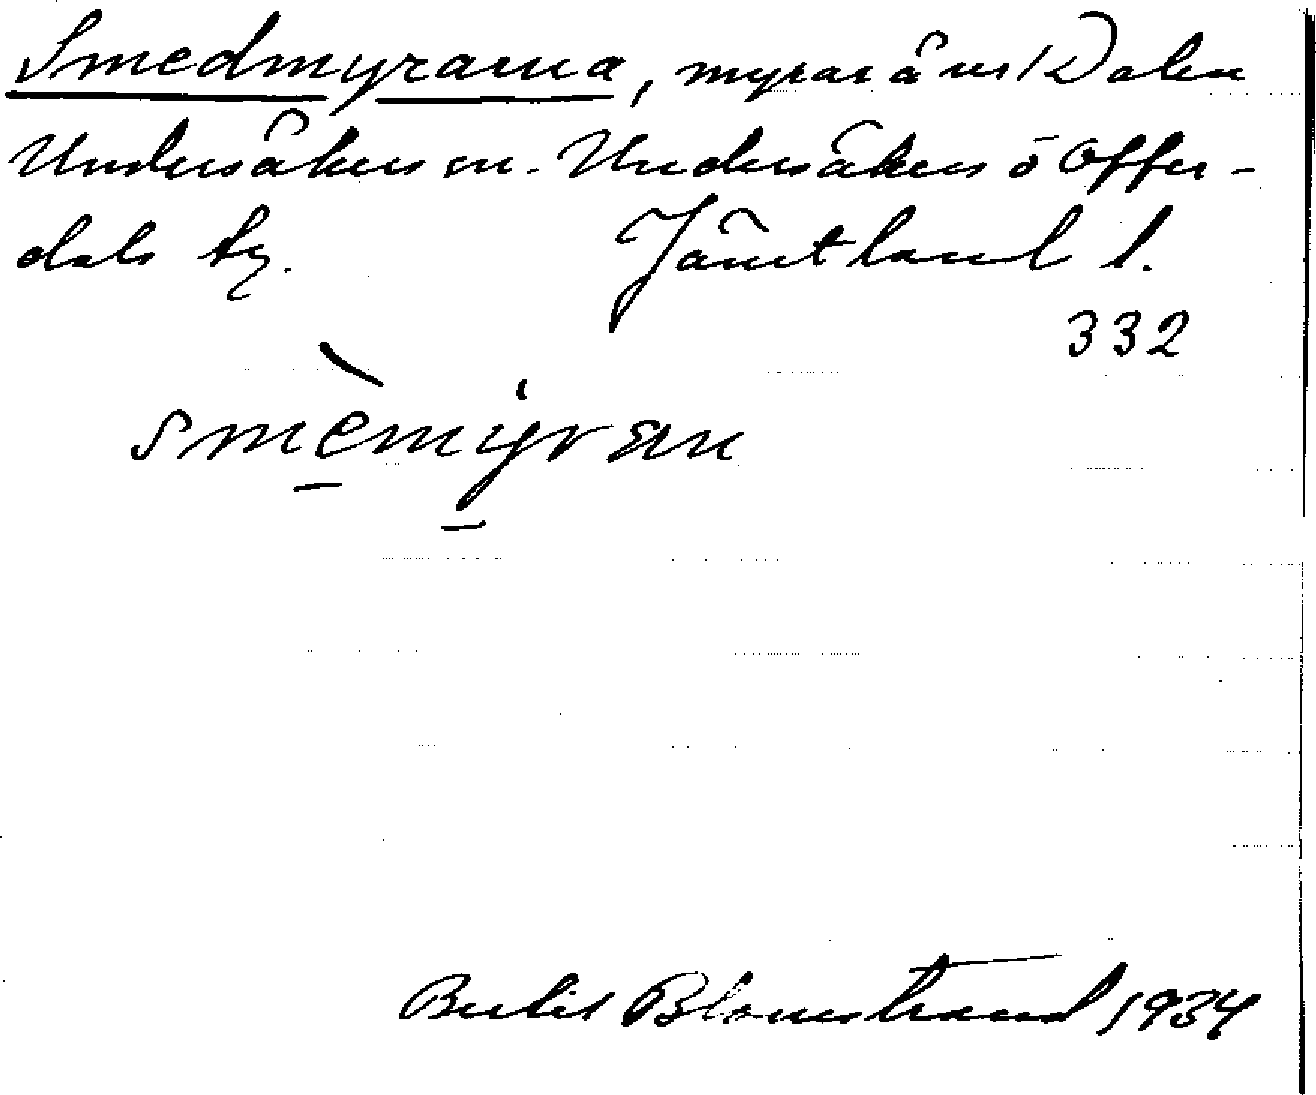 Smedmyrarna, myrar å ns/ Dalen
Undersåkers sn. Undersåkers o Offer-
dals tg. Jämtland l.
332
smèmyran
Bertil Blomstrand 1934